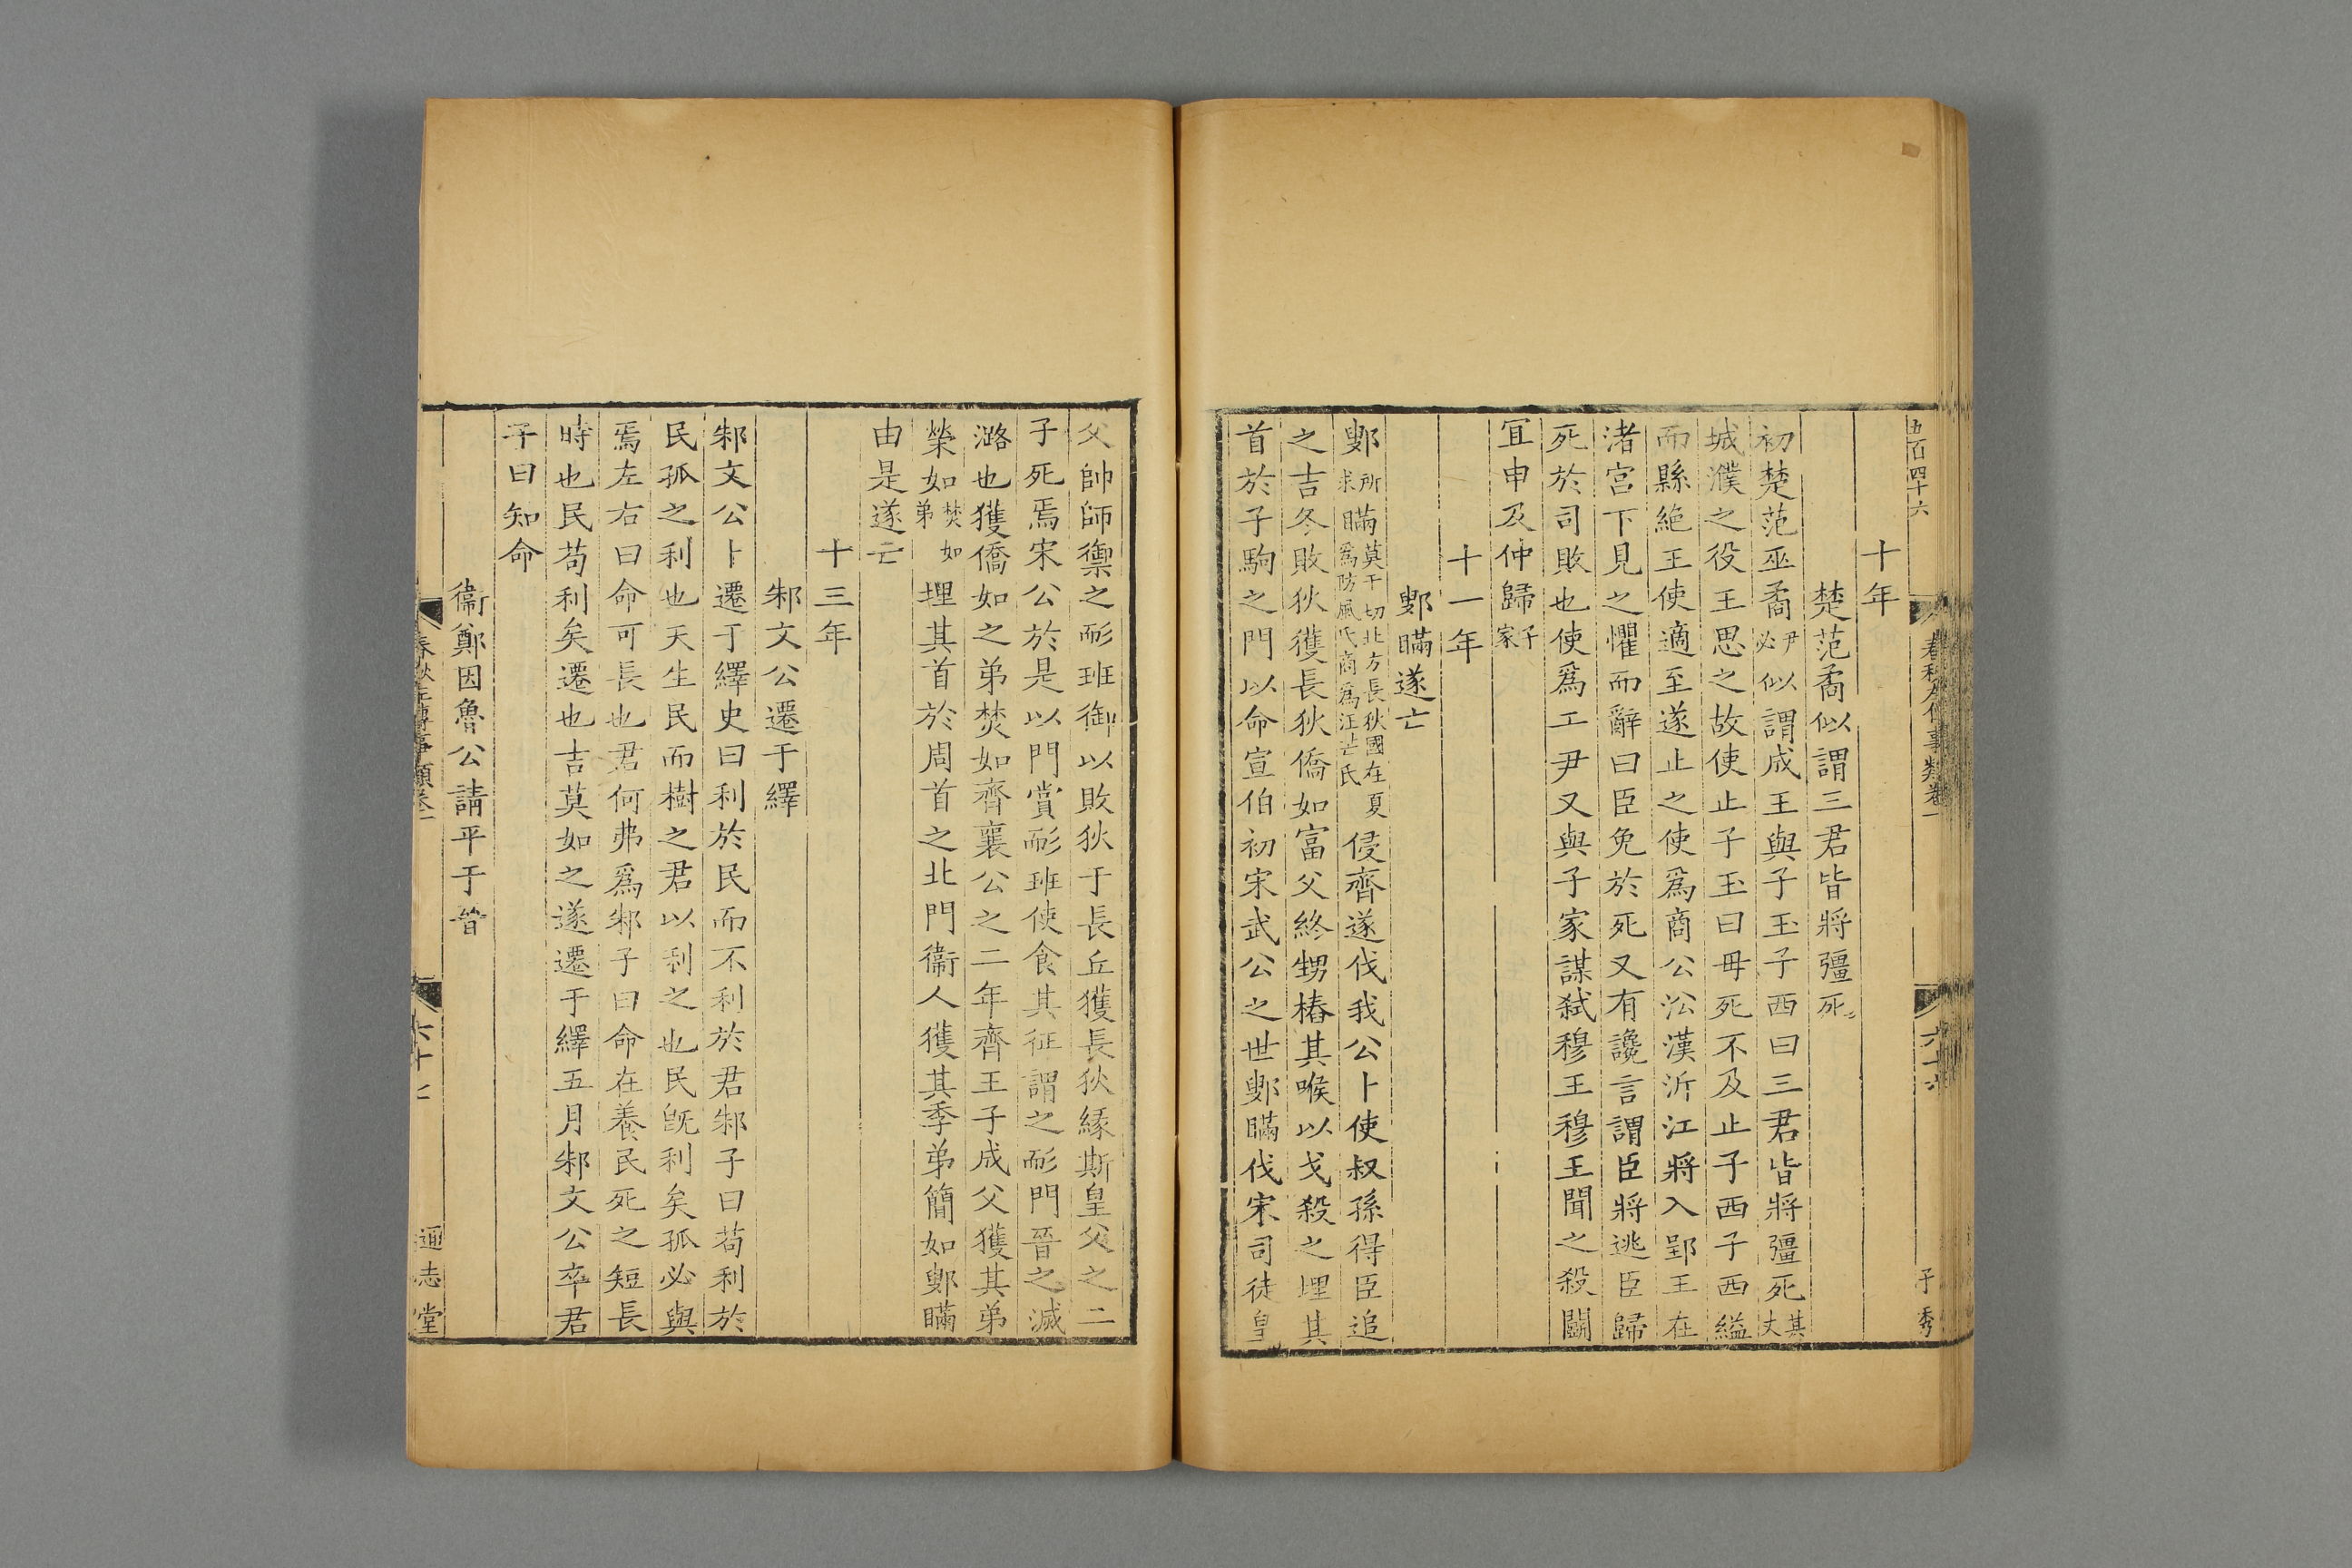 五百四十六　春秋左傳事類卷一　六十六　子秀
十年
楚范矞似謂三君皆將彊死
初楚范巫矞尹必似謂成王與子玉子西曰三君皆將彊死其丈
城濮之役王思之故使止子玉曰毋死不及止子西子西縊
而縣絕王使適至遂止之使爲商公㳂漢泝江將入郢王在
渚宮下見之懼而辭曰臣免於死又有讒言謂臣將逃臣歸
死於司敗也使爲工尹又與子家謀弑穆王穆王聞之殺鬭
宜申及仲歸子家
十一年
鄋瞞遂亡
鄋所求瞞莫干切北方長狄國在夏爲防風氏商爲汪芒氏侵齊遂伐我公卜使叔孫得臣追
之吉冬敗狄獲長狄僑如富父終甥樁其喉以戈殺之埋其
首於子駒之門以命宣伯初宋武公之世鄋瞞伐宋司徒皇
父帥師禦之耏班御以敗狄于長丘獲長狄緣斯皇父之二
子死焉宋公於是以門賞耏班使食其征謂之耏門晉之滅
潞也獲僑如之弟焚如齊襄公之二年齊王子成父獲其弟
榮如焚如弟埋其首於周首之北門衞人獲其季弟簡如鄋瞞
由是遂亡
十三年
邾文公遷于繹
邾文公卜遷于繹史曰利於民而不利於君邾子曰苟利於
民孤之利也天生民而樹之君以利之也民旣利矣孤必與
焉左右曰命可長也君何弗爲邾子曰命在養民死之短長
時也民苟利矣遷也吉莫如之遂遷于繹五月邾文公卒君
子曰知命
衞鄭因魯公請平于晉
春秋左傳事類卷一　六十七　通志堂